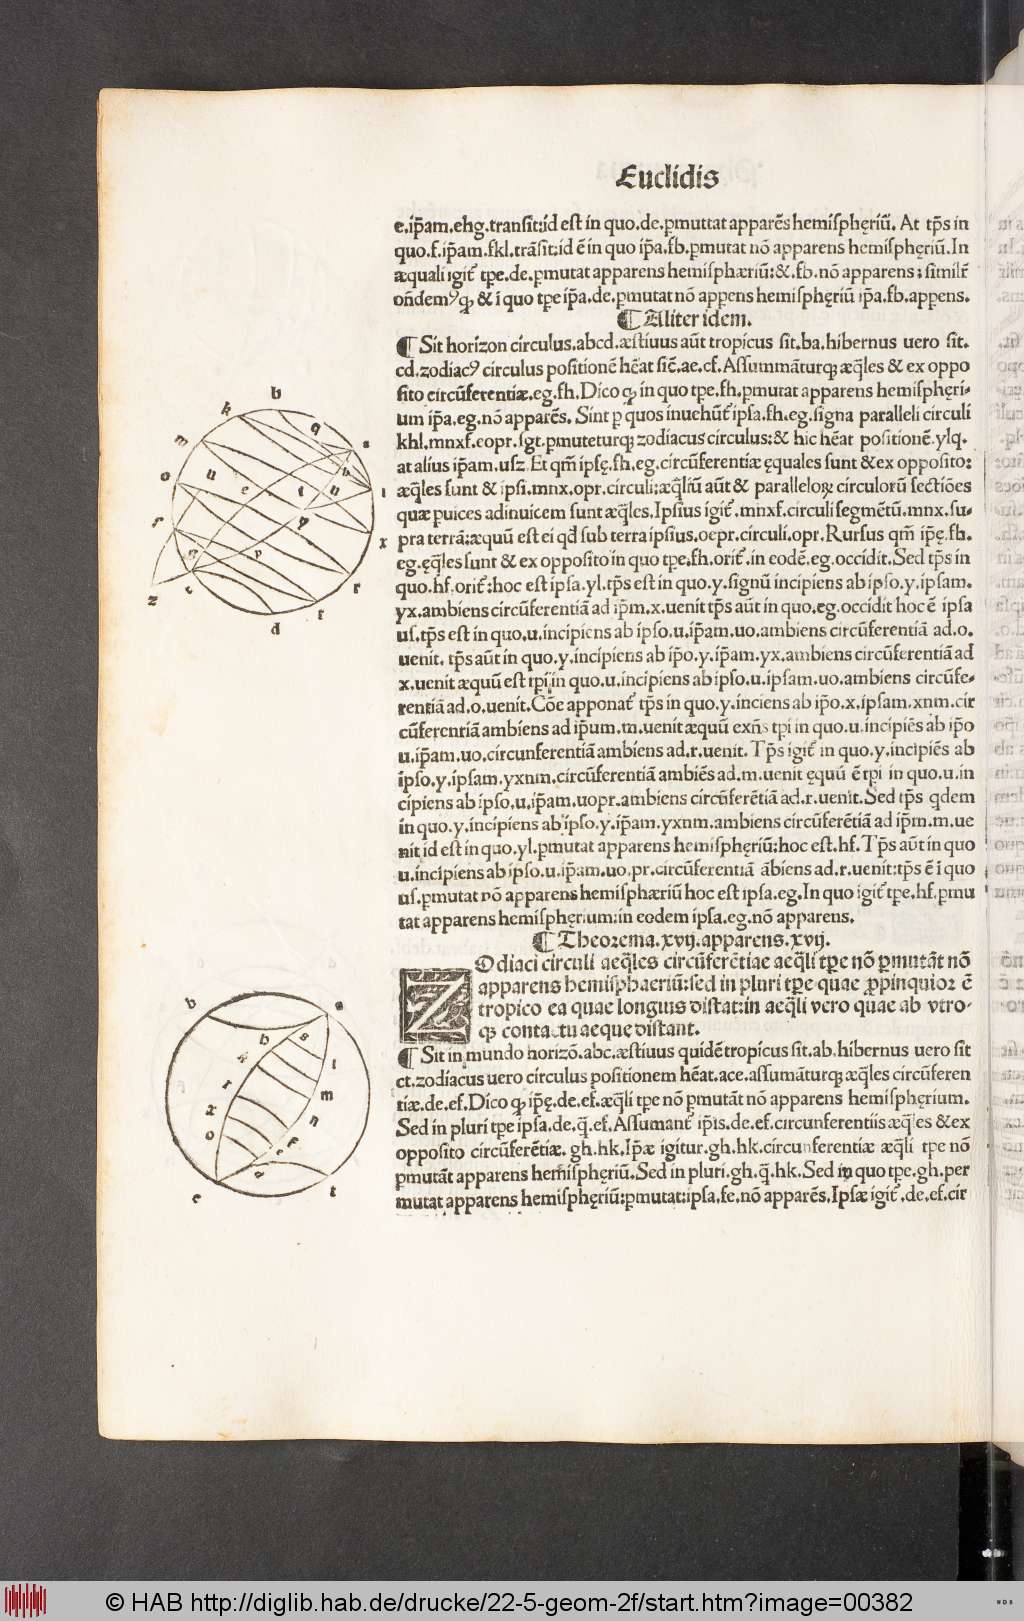 Euclidis
e.ip̄am.ehg.transit:id est in quo.de.p̱muttat apparēs hemisphęriū. At tp̄s in
quo.f.ip̄am.fkl.trāsit:id ē in quo ip̄a.fb.p̱mutat nō apparens hemisphęriū.In
æquali igit᷑ tp̱e.de.p̱mutat apparens hemisphæriū:&.fb.nō apparens; simili᷑
on̄demꝰqꝫ & ī quo tp̱e ip̄a.de.p̱mutat nō app̱ens hemisphęriū ip̄a.fb.app̱ens.
¶ Aliter idem.
¶ Sit horizon circulus.abcd.æstiuus aūt tropicus sit.ba.hibernus uero sit.
cd.zodiacꝰ circulus positionē hēat sic̄.ae.cf.Assummāturqꝫ æq̄les & ex oppo
sito circūferentiæ.eg.fh.Dico qꝫ in quo tp̱e.fh.p̱mutat apparens hemisphęri-
um ip̄a.eg.nō apparēs. Sint p̱ quos inuehūt᷑ ipsa.fh.eg.signa paralleli circuli
khl.mnxf.eopr.sgt.p̱muteturqꝫ zodiacus circulus:& hic hēat positionē.ylq.
at alius ip̄am.usz.Et qm̄ ipsę.fh,eg.circūferentiæ ęquales sunt & ex opposito:
æq̄les sunt & ipsi.mnx.opr.circuli:æq̄liū aūt & paralleloꝝ circulorū sectiōes
quæ p̱uices adinuicem sunt æq̄les.Ipsius igit᷑.mnxf.circuli segmētū.mnx.su-
pra terrā:æquū est ei qd̄ sub terra ipsius.oepr.circuli.opr. Rursus qm̄ ip̄ę.fh.
eg.ęq̄les sunt & ex opposito in quo tp̱e.fh.orit᷑.in eodē.eg.occidit.Sed tp̄s in
quo.hf.orit᷑:hoc est ipsa.yl.tp̄s est in quo.y.signū incipiens ab ipso.y.ipsam.
yx.ambiens circūferentiā ad ip̄m.x.uenit tp̄s aūt in quo.eg.occidit hoc ē ipsa
us.tp̄s est in quo,u.incipiens ab ipso.u.ip̄am.uo.ambiens circūferentiā ad.o.
uenit. tp̄s aūt in quo.y.incipiens ab ip̄o.y.ip̄am.yx.ambiens circūferentiā ad
x.uenit æquū est tp̱i in quo.u.incipiens ab ipso.u.ipsam.uo.ambiens circūfe-
rentiā ad.o.uenit. Cōe apponat᷑ tp̄s in quo.y.inciens ab ip̄o.x.ipsam.xnm.cir
cūferentiā ambiens ad ip̄um.m.uenit æquū exn̄s tpi in quo.u.incipiēs ab ip̄o
u.ip̄am.uo.circunferentiā ambiens ad.r.uenit. Tp̄s igit᷑ in quo.y.incipiēs ab
ipso.y.ipsam.yxnm.circūferentiā ambiēs ad.m.uenit ęquū ē tpi in quo.u.in
cipiens ab ipso,u.ip̄am.uopr.ambiens circūferētiā ad.r.uenit.Sed tp̄s qdem
in quo.y.incipiens ab ipso.y.ip̄am.yxnm.ambiens circūferētiā ad ip̄m.m.ue
nit id est in quo.yl.p̱mutat apparens hemisphęriū:hoc est.hf.Tp̄s aūt in quo
u.incipiens ab ip̄so.u.ip̄am.uo.pr.circūferentiā ābiens ad.r.uenit:tp̄s ē ī quo
us.p̱mutat nō apparens hemisphæriū hoc est ipsa.eg.In quo igit᷑ tp̱e.hf.p̱mu
tat apparens hemisphęrium:in eodem ipsa.eg.nō apparens.
¶ Theorema.xvij.apparens.xvij.
ZOdiaci circuli aeq̄les circūferētiae aeq̄li tp̱e nō p̱mutāt nō
apparens hemisphaeriū:sed in pluri tp̱e quae p̱pinquior ē
tropico ea quae longius distat:in aeq̄li vero quae ab vtro-
qꝫ contactu aeque distant.
¶ Sit in mundo horizō.abc.æstiuus quidē tropicus sit.ab.hibernus uero sit
ct.zodiacus uero circulus positionem hēat.ace.assumāturqꝫ æq̄les circūferen
tiæ.de.ef.Dico qꝫ ip̄ę.de.ef.æq̄li tp̱e nō p̱mutāt nō apparens hemisphęrium.
Sed in pluri tp̱e ipsa.de,q̄.ef.Assumant᷑ ip̄is.de.ef.circunferentiis æq̄les &ex
opposito circūferētiæ. gh.hk.Ip̄æ igitur.gh.hk.circunferentiæ æq̄li tp̱e nō
p̱mutāt apparens hemisphęriū.Sed in pluri.gh.q̄.hk.Sed in quo tp̱e.gh.per
mutat apparens hemisphęriū:p̱mutat:ipsa,fe,nō apparēs.Ipsæ igit᷑.de.ef.cir
b
k
q
m
a
b
o
u
e
t
n
l
f
y
x
g
p
z
c
r
t
d
b
a
b
s
k
l
r
m
x
n
o
f
e
d
e
t
© HAB http://diglib.hab.de/drucke/22-5-geom-2f/start.htm?image=00382